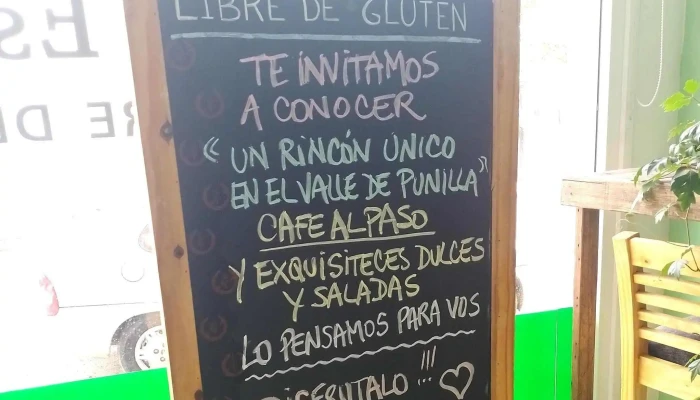 LIBRE DE GLUTEN
TE INVITAMOS
A CONOCER
"UN RINCÓN ÚNICO
EN EL VALLE DE PUNILLA"
CAFE AL PASO
Y EXQUISITECES DULCES
Y SALADAS
LO PENSAMOS PARA VOS
DISFRUTALO!!!
ES
RE DE